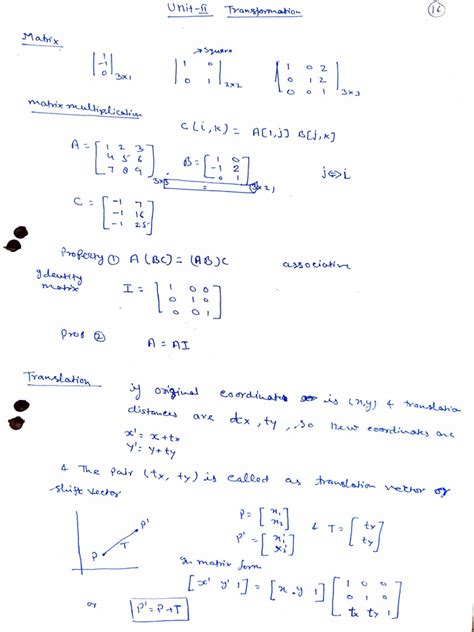 Unit-II Transformation
16
Matrix
→ Square
[1 -1 0] 3x1 [1 0 0 1] 2x2 [1 0 2 0 1 2 0 0 1] 3x3
matrix multiplication
C(i,k) = A[i,j] B[j,k]
A = [1 2 3 4 5 6 7 8 9] 3x3 B = [1 0 -1 2 0 1] 3x2 j↔i
=
C = [-1 7 -1 16 -1 25]
Property ① A(BC) = (AB)C associative
Identity matrix I = [1 0 0 0 1 0 0 0 1]
Prop ②
A = AI
Translation if original coordinates is (x,y) & translation
distances are tx, ty, so new coordinates are
x' = x+tx
y' = y+ty
& The pair (tx, ty) is called as translation vector or
shift vector
P' P T
P = [x1 x2] & T = [tx ty]
P' =
In matrix form
[x' y' 1] = [x y 1] [1 0 0 0 1 0 tx ty 1]
or P' = P+T